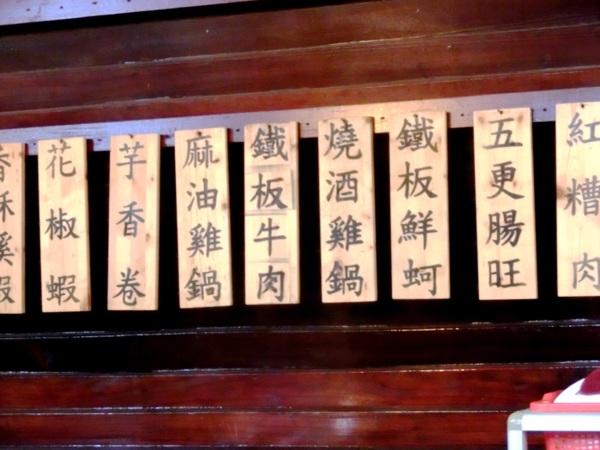 紅糟肉
五更腸旺
鐵板鮮蚵
燒酒雞鍋
鐵板牛肉
麻油雞鍋
芋香卷
花椒蝦
香酥溪蝦